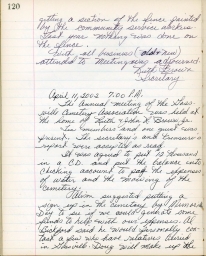 120
getting a section of the fence painted
by the community service workers
that once nothing was done on
the fence.
With all business (old & new)
attended to Meeting was adjourned.
Ruth Brown
Secretary
April 11, 2002 7:00 P.M.
The Annual meeting of the
Cemetery Association was held at
the home of Ruth & John R. Brown Jr.
Ten members and one guest was
present. The secretary's and Treasurer's
report were accepted as read.
It was agreed to put 12 thousand
in a C.D. and put the balance into
checking account to pay the expenses
of water and the mowing of the
Cemetery.
suggested putting a
sign up in the cemetery by Memorial
Day to see if we could get some
to help with our expenses. Al
Bickford said he would personally con-
tact a few who have relatives buried
in will make up the